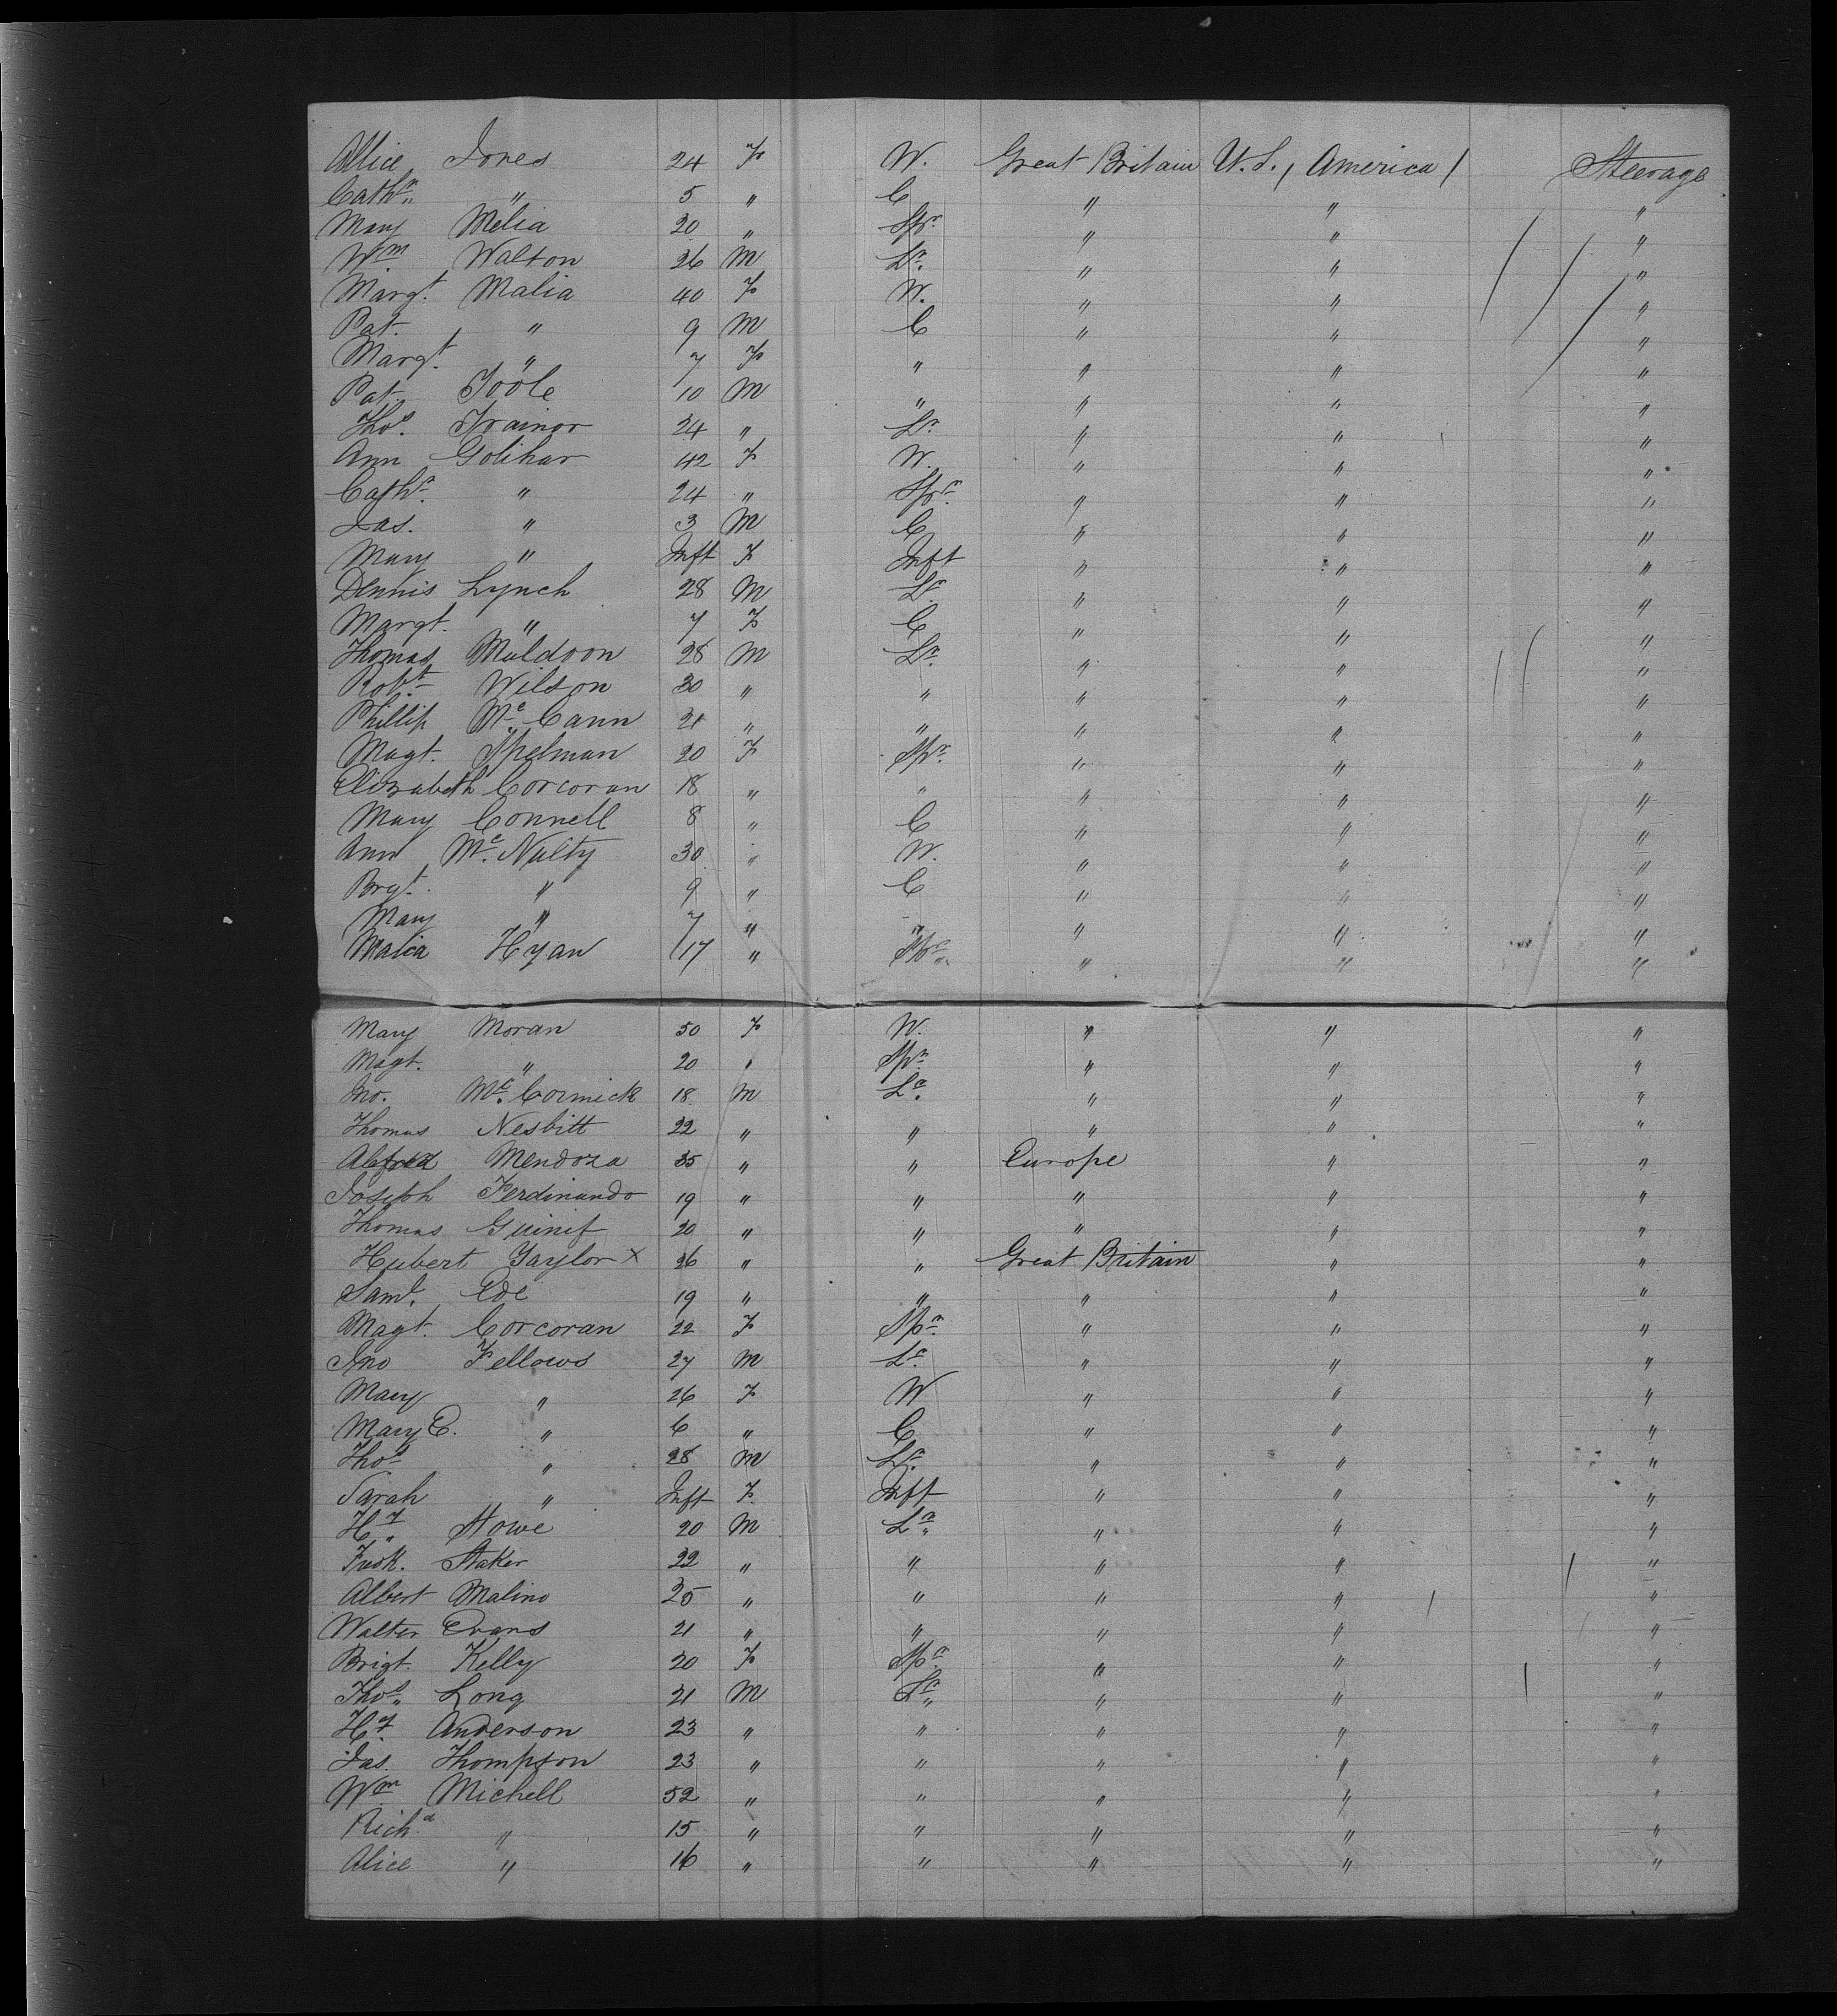 Allice Jones 24 F W. Great Britain U.S. / America / Steerage
Cathn " 5 " C " " "
Mary Melia 20 " Spr " " "
Wm Walton 26 M Lr. " " "
Margt. Malia 40 F W. " " "
Pat. " 9 M C " " "
Margt. " 7 F " " " "
Pat. Toole 10 M " " " "
Thos. Trainor 24 " Lr. " " "
Ann Golihar 42 F W. " " "
Cathn. " 24 " Spr. " " "
Jas. " 3 M C " " "
Mary " Inft F Inft " " "
Dennis Lynch 28 M Lr. " " "
Margt. " 7 F C " " "
Thomas Muldoon 28 M Lr. " " "
Robt. Wilson 30 " " " " "
Phillip Mc. Cann 21 " " " " "
Magt. Spelman 20 F Spr. " " "
Elizabeth Corcoran 18 " " " " "
Mary Connell 8 " C " " "
Ann Mc. Nulty 30 " W. " " "
Brgt. " 9 " C " " "
Mary " 7 " " " " "
Malia Hyan 17 " Spr. " " "
Mary Moran 50 F W. " " "
Magt. " 20 " Spr. " " "
Jno. Mc. Cormick 18 M Lr. " " "
Thomas Nesbitt 22 " " " " "
Alefred Mendoza 35 " " Europe " "
Joseph Ferdinando 19 " " " " "
Thomas Guinif 20 " " " " "
Hubert Taylor x 26 " " Great Britain " "
Saml. Ede 19 " " " " "
Magt. Corcoran 22 F Spr. " " "
Jno Fellows 27 M Lr. " " "
Mary " 26 F W " " "
Mary E. " 6 " C " " "
Thos " 28 M Lr. " " "
Sarah " Inft F. Inft " " "
Hy. Stowe 20 M Lr. " " "
Fredk. Staker 22 " " " " "
Albert Malino 25 " " " " "
Walter Evans 21 " " " " "
Brigt. Kelly 20 F Spr. " " "
Thos. Long 21 M Lr. " " "
Hy. Anderson 23 " " " " "
Jas. Thompson 23 " " " " "
Wm Michell 52 " " " " "
Richd. " 15 " " " " "
Alice " 16 " " " " "